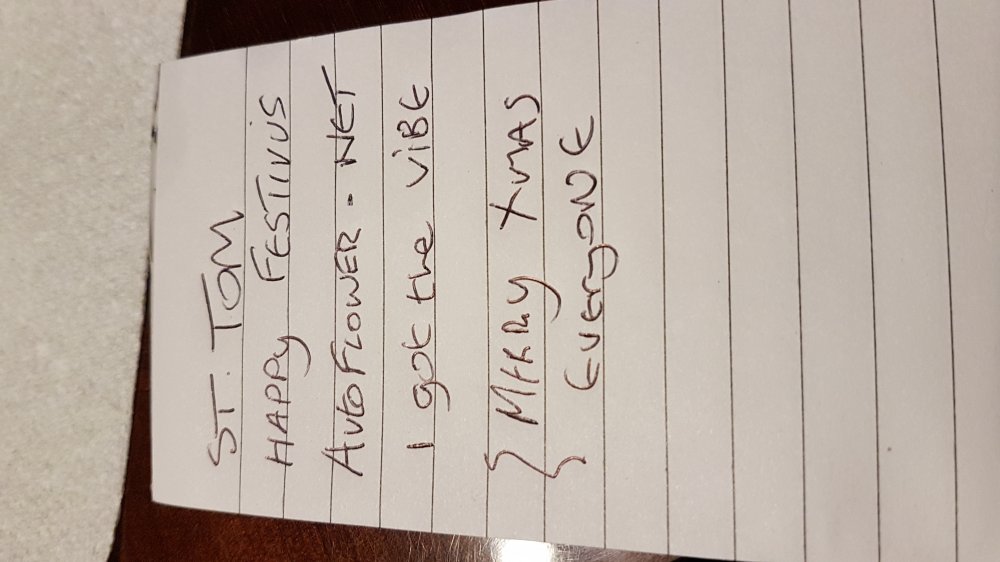 ST. TOM
HAPPY FESTIVUS
AUTOFLOWER.NET
I got the ViBE
} MERRY XMAS
EVERYONE